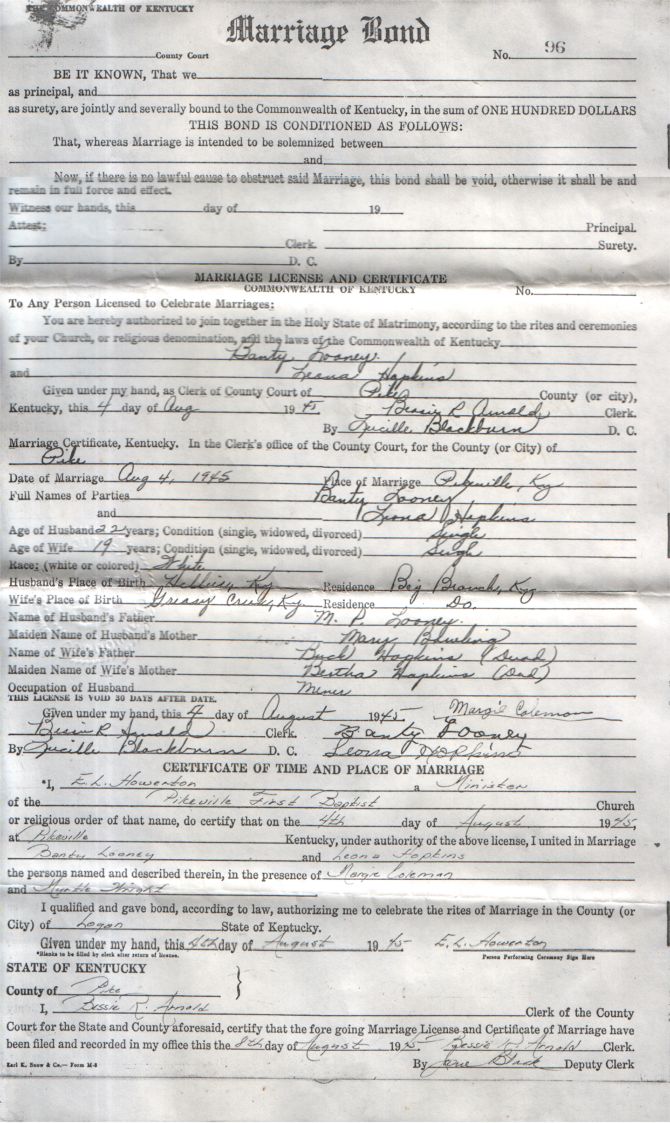 THE COMMONWEALTH OF KENTUCKY
Marriage Bond
County Court No. 96
BE IT KNOWN, That we
as principal, and
as surety, are jointly and severally bound to the Commonwealth of Kentucky, in the sum of ONE HUNDRED DOLLARS
THIS BOND IS CONDITIONED AS FOLLOWS:
That, whereas Marriage is intended to be solemnized between
and
Now, if there is no lawful cause to obstruct said Marriage, this bond shall be void, otherwise it shall be and
remain in full force and effect.
Witness our hands, this day of 19
Attest: Principal.
Clerk. Surety.
By D. C.
MARRIAGE LICENSE AND CERTIFICATE
COMMONWEALTH OF KENTUCKY No.
To Any Person Licensed to Celebrate Marriages:
You are hereby authorized to join together in the Holy State of Matrimony, according to the rites and ceremonies
of your Church, or religious denomination, and the laws of the Commonwealth of Kentucky
Banty Looney
and Leona Hopkins
Given under my hand, as Clerk of County Court of Pike County (or city),
Kentucky, this 4 day of Aug 1945 Bessie R Arnold Clerk.
By Lucille Blackburn D. C.
Marriage Certificate, Kentucky. In the Clerk's office of the County Court, for the County (or City) of
Pike
Date of Marriage Aug 4, 1945 Place of Marriage Pikeville, Ky
Full Names of Parties Banty Looney
and Leona Hopkins
Age of Husband 22 years; Condition (single, widowed, divorced) Single
Age of Wife 19 years; Condition (single, widowed, divorced) Single
Race; (white or colored) White
Husband's Place of Birth Hellier, Ky Residence Big Branch, Ky
Wife's Place of Birth Greasy Creek, Ky. Residence Do.
Name of Husband's Father M. P. Looney
Maiden Name of Husband's Mother Mary Bowling
Name of Wife's Father Buck Hopkins (Dead)
Maiden Name of Wife's Mother Bertha Hopkins (Dad)
Occupation of Husband Miner
THIS LICENSE IS VOID 30 DAYS AFTER DATE.
Given under my hand, this 4 day of August 1945 Margie Coleman
Bessie R Arnold Clerk. Banty Looney
By Lucille Blackburn D. C. Leona Hopkins
CERTIFICATE OF TIME AND PLACE OF MARRIAGE
*I, E. L. Howerton a Minister
of the Pikeville First Baptist Church
or religious order of that name, do certify that on the 4th day of August 1945,
at Pikeville Kentucky, under authority of the above license, I united in Marriage
Banty Looney and Leona Hopkins
the persons named and described therein, in the presence of Margie Coleman
and Myrtle Wright
I qualified and gave bond, according to law, authorizing me to celebrate the rites of Marriage in the County (or
City) of Logan State of Kentucky.
Given under my hand, this 4th day of August 1945 E. L. Howerton
*Blanks to be filled by clerk after return of license. Person Performing Ceremony Sign Here
STATE OF KENTUCKY
County of Pike }
I, Bessie R. Arnold Clerk of the County
Court for the State and County aforesaid, certify that the fore going Marriage License and Certificate of Marriage have
been filed and recorded in my office this the 8th day of August 1945 Bessie R Arnold Clerk.
Earl K. Snow & Co.— Form M-8 By Deputy Clerk